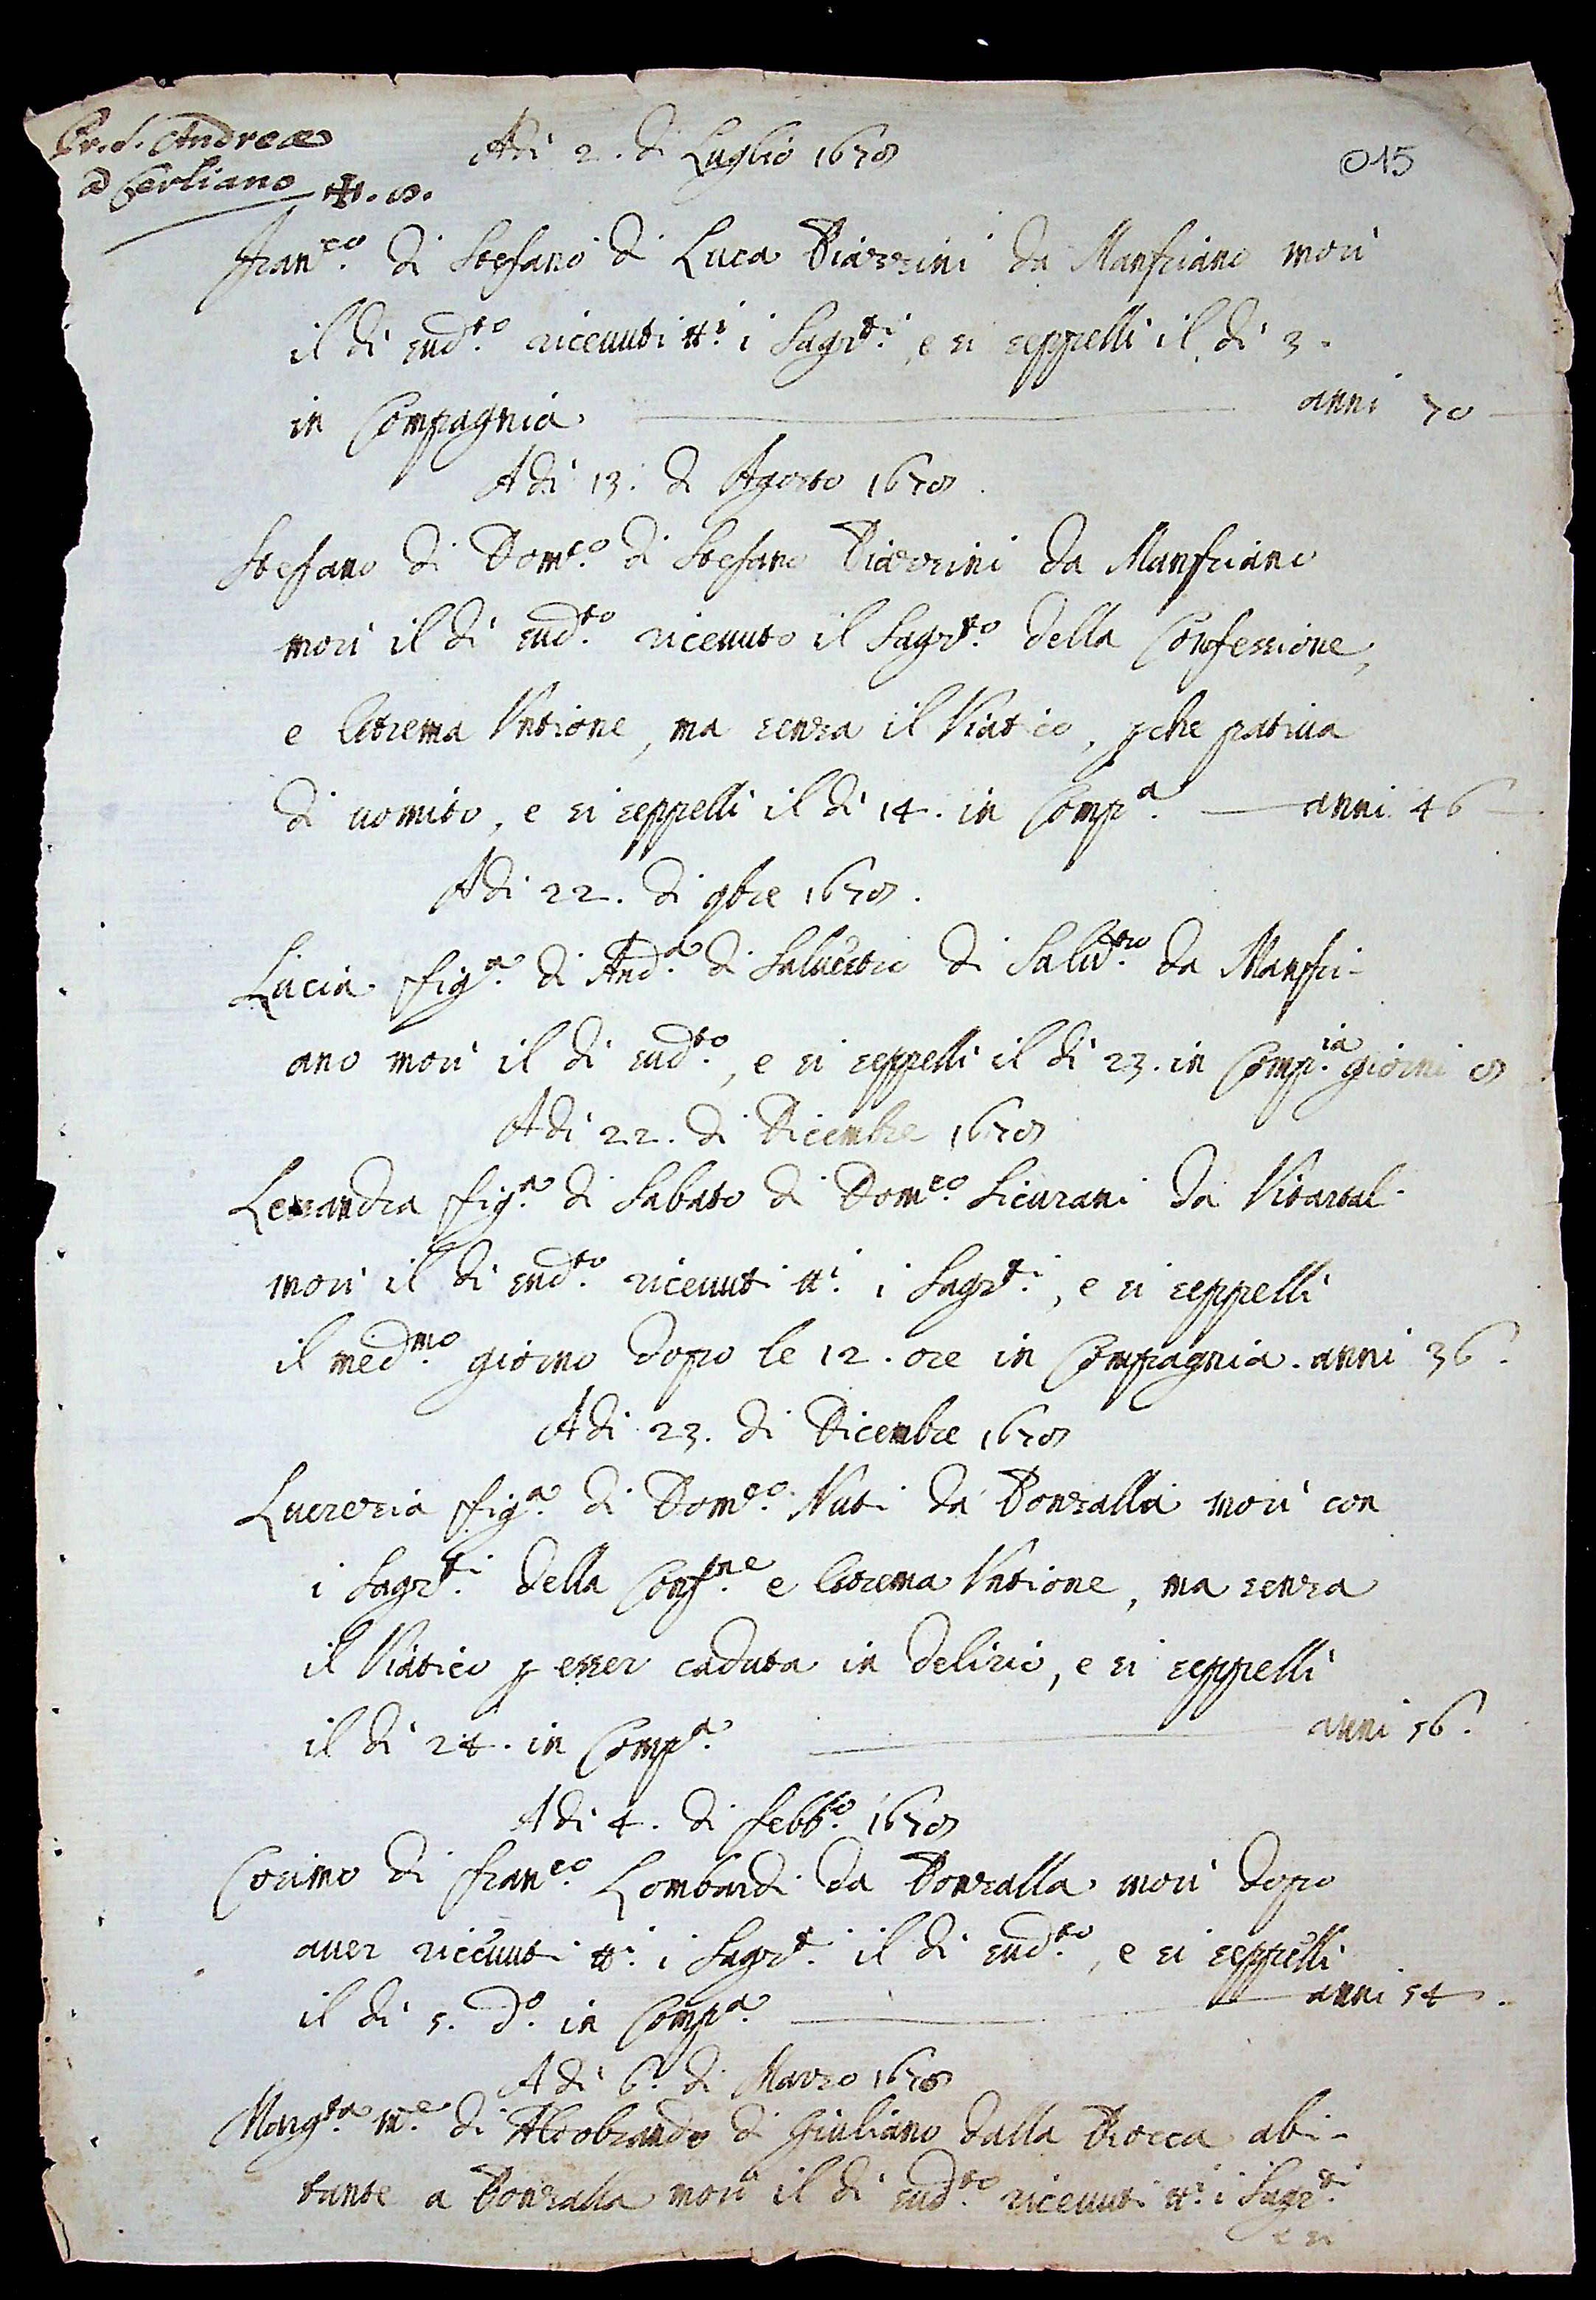 Pr. S. Andreæ
a Cerliano ✠. 8.
Adi 2. di Luglio 1678
015
Fran.co di Stefano di Luca Piazzini da Manfriano morì
il dì sud.to riceuuti tt.i i Sagr.ti, e si seppellì il dì 3.
in Compagnia anni 70
Adi 13. di Agosto 1678.
Stefano di Dom.co di Stefano Piazzini da Manfriano
morì il dì sud.to riceuuto il Sagr.to della Confessione,
e Estrema Vntione, ma senza il Viatico, pche patiua
di uomito, e si seppellì il dì 14. in Comp.a anni 46
Adi 22. di 9bre 1678.
Lucia fig.a di And.a di Saluestro di Salu.tro da Manfri-
ano morì il dì sud.to, e si seppellì il dì 23. in Comp.ia giorni 8
Adi 22. di Dicembre 1678
Lessandra fig.a di Sabato di Dom.co Sicurani da Vitartal
morì il dì sud.to riceuuti tt.i i Sagr.ti, e si seppellì
il med.mo giorno dopo le 12. ore in Compagnia. anni 36.
Adi 23. di Dicembre 1678
Lucrezia fig.a di Dom.co Nuti da Ponzalla morì con
i Sagr.ti della Conf.ne e Estrema Vntione, ma senza
il Viatico p esser caduta in delirio, e si seppellì
il dì 24. in Comp.a anni 56.
Adi 4. di febb.o 1678
Cosimo di fran.co Lombardi da Ponzalla morì dopo
auer riceuuti tt.i i Sagr.t il dì sud.to, e si seppellì
il dì 5. d.o in Comp.a anni 54.
Adi 6. di Marzo 1678
Marg.ta m.e di Aldobrando di Giuliano dalla Rocca abi-
tante a Ponzalla morì il dì sud.to riceuuti tt.i i Sagr.ti
e si